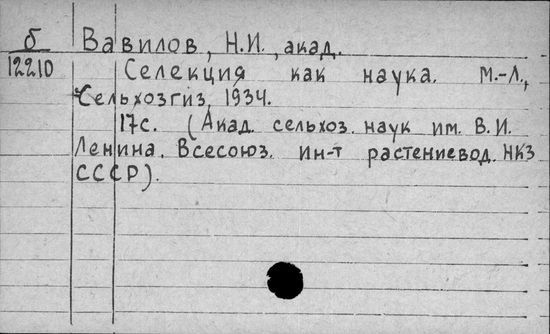 б Вавилов, Н.И., акад.
12210 Селекция как наука. М.-Л.,
Сельхозгиз, 1934.
17с. (Акад. сельхоз. наук им. В.И.
Ленина. Всесоюз. ин-т растениевод. НКЗ
СССР).